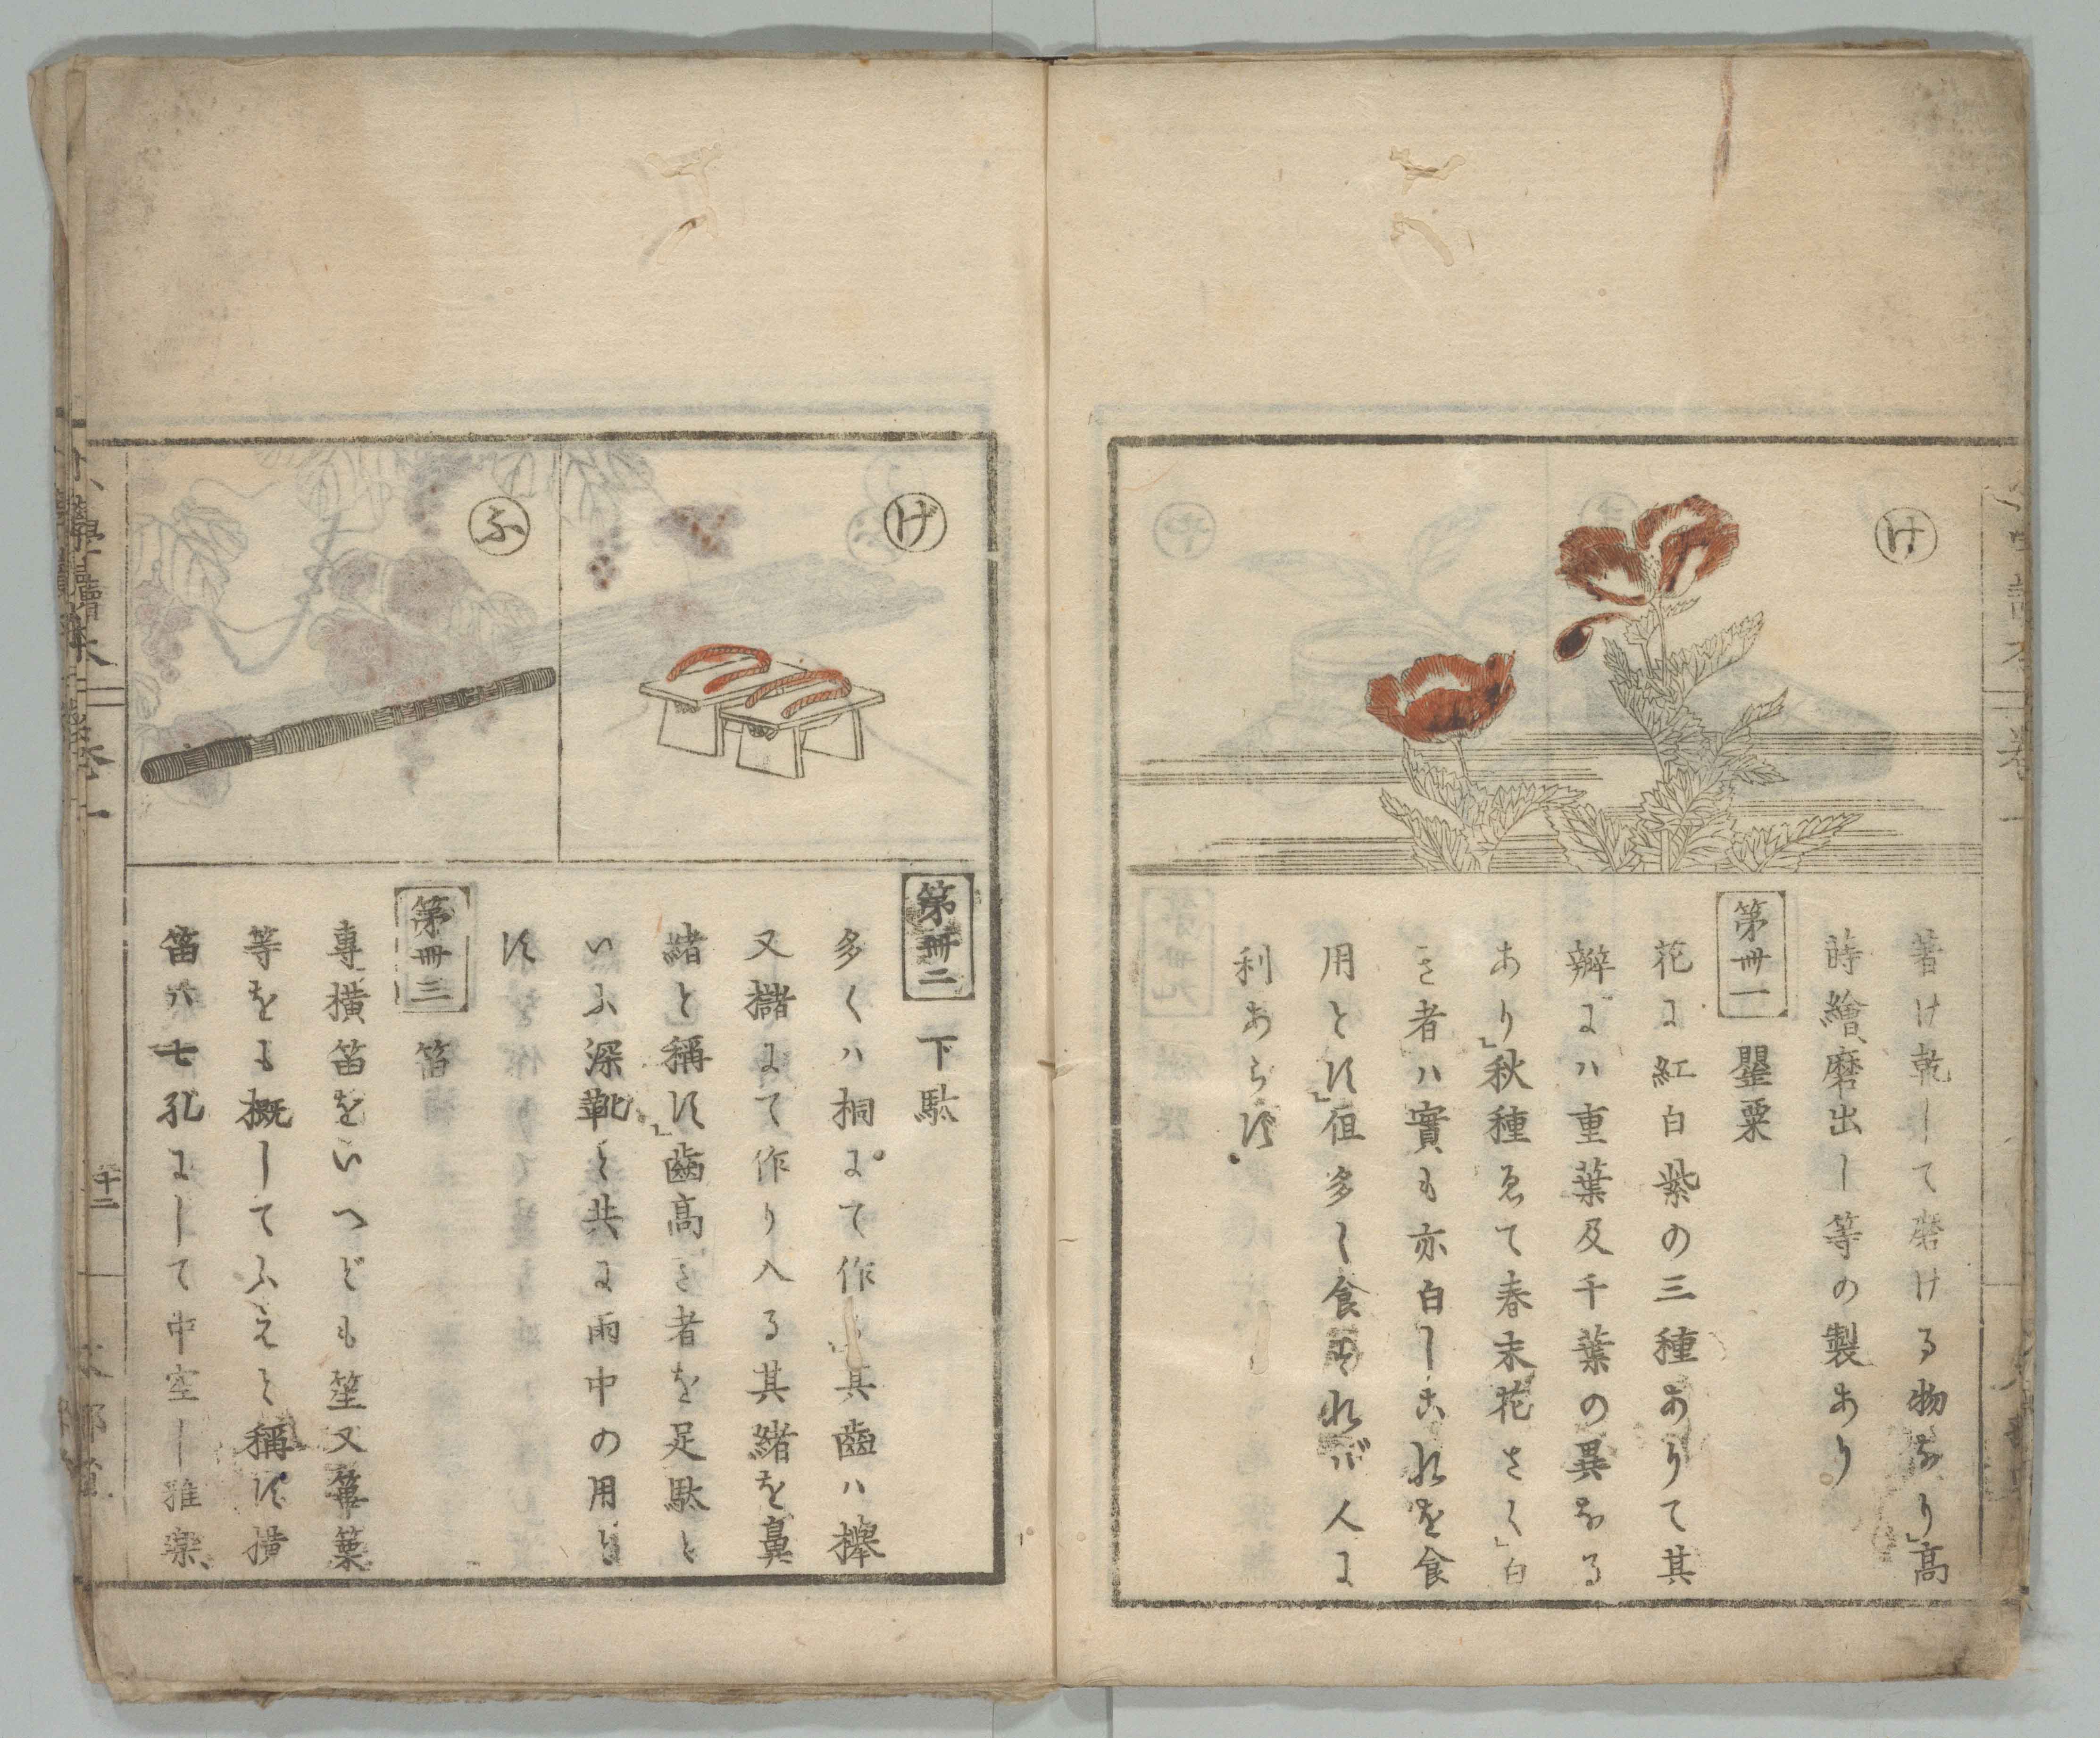 け
著け乾して磨ける物なり」高
蒔繪磨出し等の製あり
第卌一 罌粟
花に紅白紫の三種ありて其
瓣にハ重葉及千葉の異なる
あり」秋種ゑて春末花さく」白
き者ハ實も亦白しこれを食
用とす」但多く食すれバ人に
利あらず
げ
ふ
第卌二 下駄
多くハ桐にて作る其齒ハ櫸
又櫧にて作り入る其緒を鼻
緒と稱す」齒高き者を足駄と
いふ深靴と共に雨中の用と
す
第卌三 笛
專橫笛をいへども笙又篳篥
等をも概してふえと稱す橫
笛ハ七孔にして中空し雅樂
小學讀本 卷一
十二